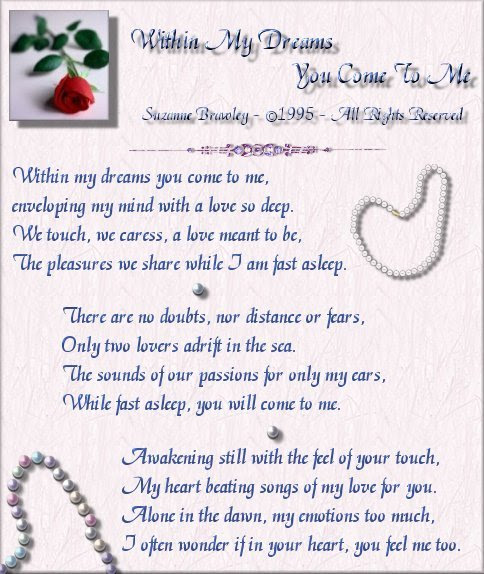 Within My Dreams
You Come To Me
Suzanne Brawley - ©1995 - All Rights Reserved
Within my dreams you come to me,
enveloping my mind with a love so deep.
We touch, we caress, a love meant to be,
The pleasures we share while I am fast asleep.
There are no doubts, nor distance or fears,
Only two lovers adrift in the sea.
The sounds of our passions for only my ears,
While fast asleep, you will come to me.
Awakening still with the feel of your touch,
My heart beating songs of my love for you.
Alone in the dawn, my emotions too much,
I often wonder if in your heart, you feel me too.